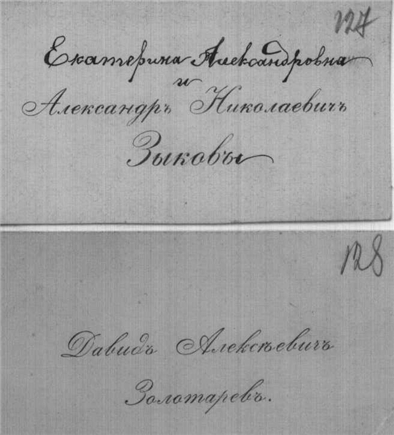 127
Екатерина Александровна
и
Александръ Николаевичъ
Зыковы
128
Давидъ Алексѣевичъ
Золотаревъ.